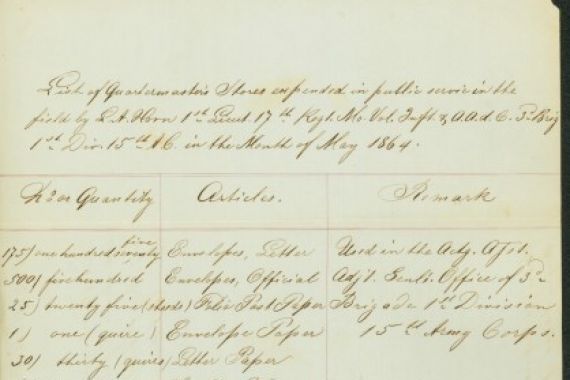 List of Quartermaster's Stores expended in public service in the
field by L.A. Horn 1st Lieut 17th Regt. Mo. Vol. Inft. & A.A.d.C. 3d Brig
1st Div. 15th A.C. in the Month of May 1864.
No or Quantity Articles. Remark
175) one hundred seventy five Envelopes, Letter Used in the Actg. Asst.
500) five hundred Envelopes, Official Adjt. Genls. Office of 3d
25) twenty five (sheets) Folio Post Paper Brigade 1st Division
1) one (quire) Envelope Paper 15th Army Corps.
30) thirty (quires) Letter Paper